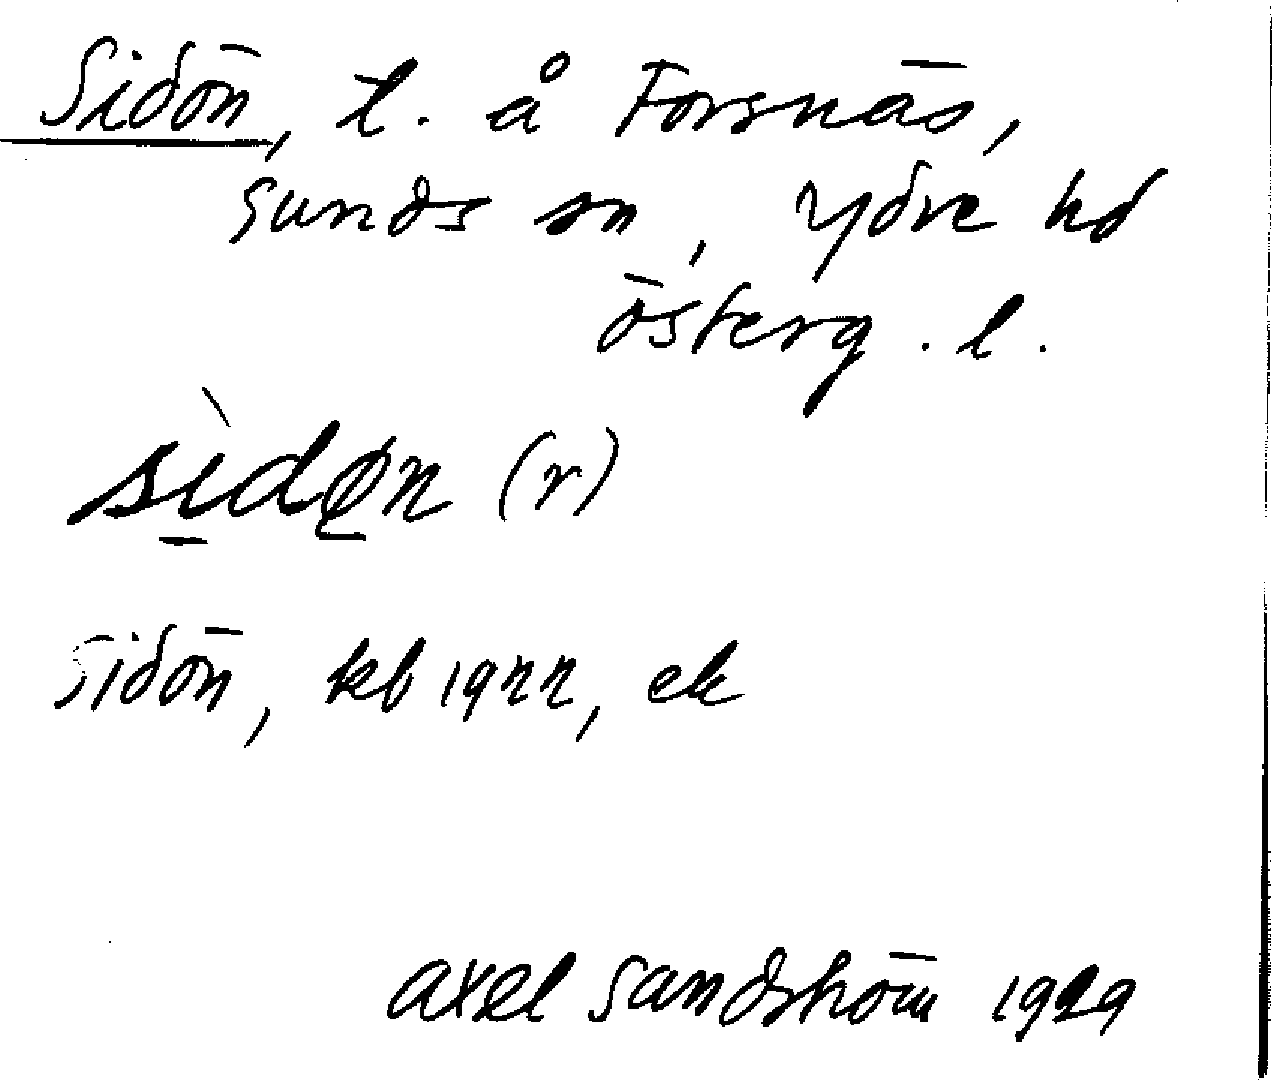 Sidön, t. å Forsnäs,
Sunds sn, Ydre hd
österg. l.
sìdøn (r)
Sidön, kb 1922, ek
Axel Sandström 1929